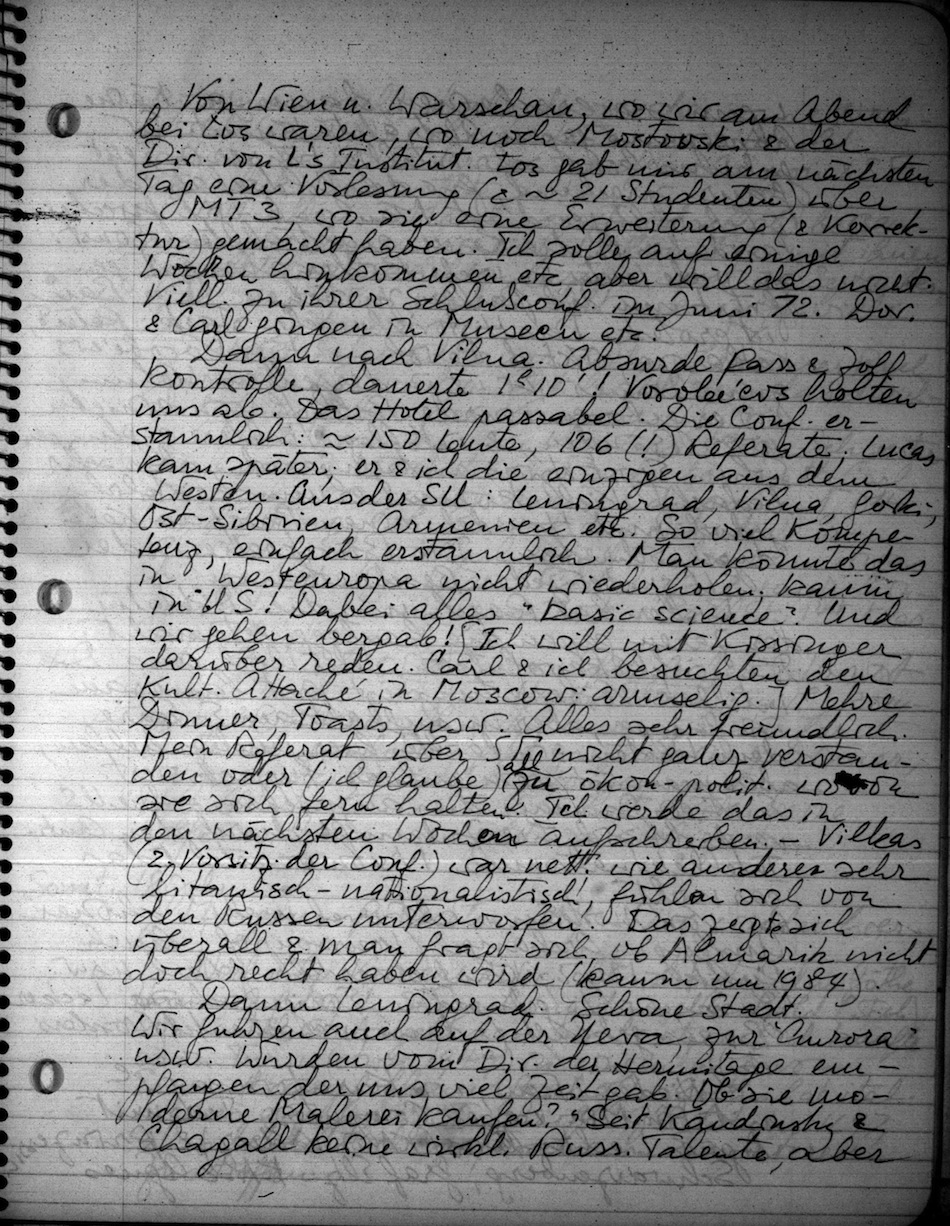 Von Wien n. Warschau, wo wir am Abend
bei Łos waren, wo noch Mostowski & der
Dir. von L's Institut. Łos gab mir am nächsten
Tag eine Vorlesung (& ~ 21 Studenten) über
MT3, wo sie eine Erweiterung (& Korrek-
tur) gemacht haben. Ich solle auf einige
Wochen hinkommen etc, aber will das nicht.
Viell. zu ihrer Schlußconf. im Juni 72. Dor.
& Carl gingen in Museen etc.
Dann nach Vilna. Absurde Pass & Zoll
Kontrolle, dauerte 1ʰ10'! Vorobévs holten
uns ab. Das Hotel passabel. Die Conf. er-
staunlich: ~ 150 Leute, 106 (!) Referate. Lucas
kam später; er & ich die einzigen aus dem
Westen. Aus der SU: Leningrad, Vilna, Gorki,
Ost-Sibirien, Armenien etc. So viel Kompe-
tenz, einfach erstaunlich. Man könnte das
in Westeuropa nicht wiederholen, kaum
in US! Dabei alles "basic science". Und
wir gehen bergab! [Ich will mit Kissinger
darüber reden. Carl & ich besuchten den
Kult. Attaché in Moscow: armselig.] Mehre
Dinner, Toasts, usw. Alles sehr freundlich.
Mein Referat über nicht ganz verstan-
den oder (ich glaube) zu ökon-polit. wovon
sie sich fern halten. Ich werde das in
den nächsten Wochen aufschreiben. – Vilkas
(2. Vorsitz. der Conf.) war nett: wie andere sehr
litauisch-nationalistisch, fühlen sich von
den Russen unterworfen. Das zeigt sich
überall & man fragt sich, ob Almarik nicht
doch recht haben wird (kaum um 1984).
Dann Leningrad. Schöne Stadt.
Wir fuhren auch auf der Neva, zur "Aurora"
usw. Wurden vom Dir. der Hermitage em-
pfangen der uns viel Zeit gab. Ob sie mo-
derne Malerei kaufen? "Seit Kandinsky &
Chagall keine wirkl. Russ. Talente, aber